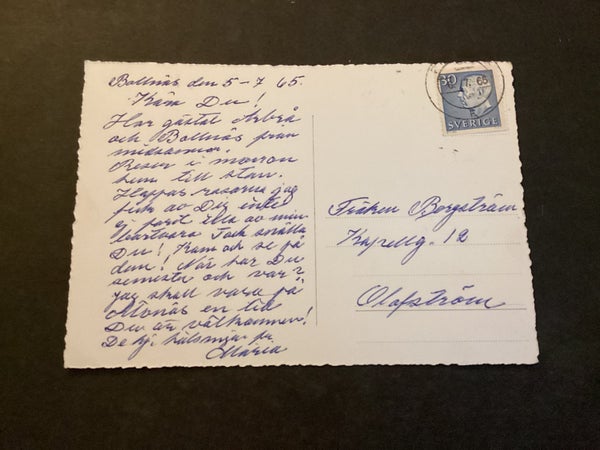 Bollnäs den 5-7 65.
Kära Du!
Har gästat Arbrå
och Bollnäs från
midsommar.
Reser i morron
hem till stan.
Hoppas rosorna jag
fick av Dig inte
ej farit illa av min
bortvaro Tack snälla
Du! Kom och se på
dem! När har Du
semester och var?
Jag skall vara på
Monäs en tid
Du är välkommen!
De hj. hälsningar fr.
Maria
30
65
SVERIGE
Fröken Borgström
Kapellg. 12
Olofström